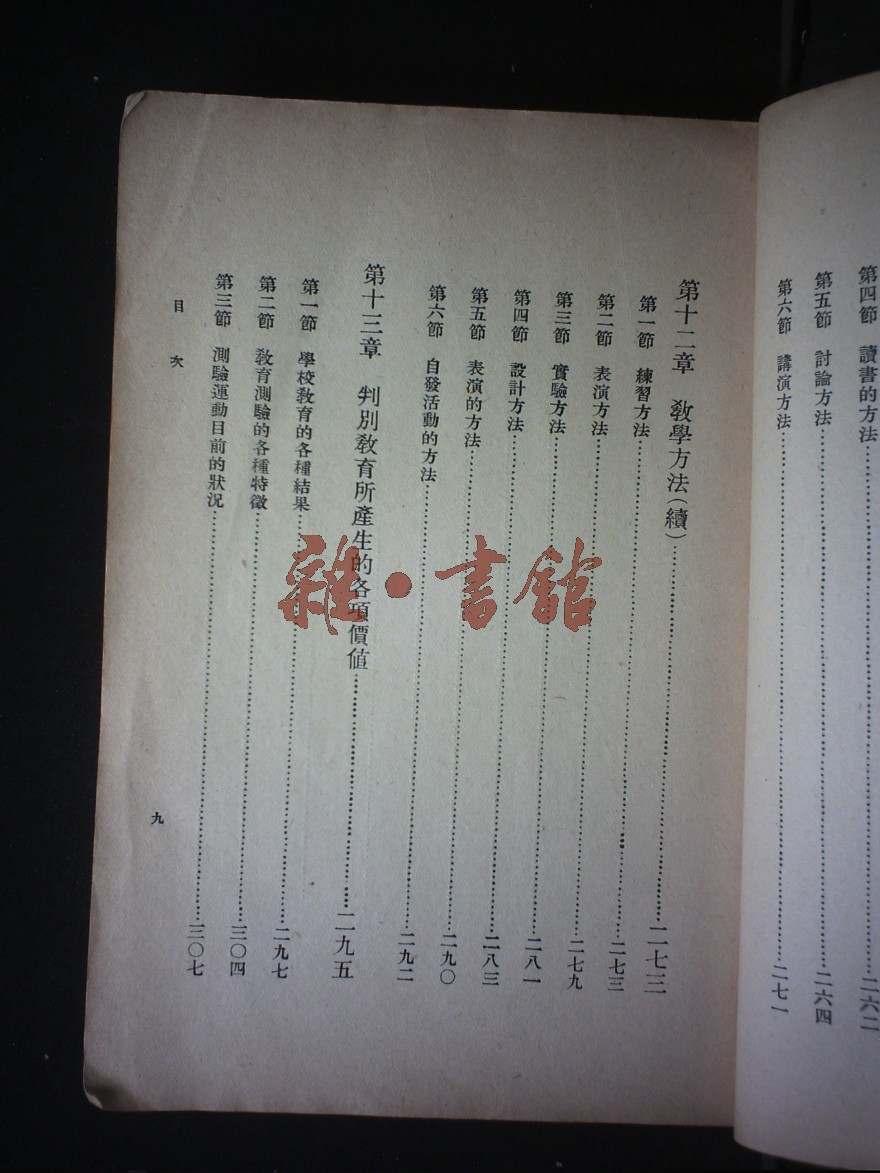 第四節 讀書的方法……二六二
第五節 討論方法……二六四
第六節 講演方法……二七一
第十二章 敎學方法(續)……二七三
第一節 練習方法……二七三
第二節 表演方法……二七九
第三節 實驗方法……二八一
第四節 設計方法……二八三
第五節 表演的方法……二九〇
第六節 自發活動的方法……二九二
第十三章 判別敎育所產生的各項價値……二九五
第一節 學校敎育的各種結果……二九七
第二節 敎育測驗的各種特徵……三〇四
第三節 測驗運動目前的狀况……三〇七
目次
九
雜·書館